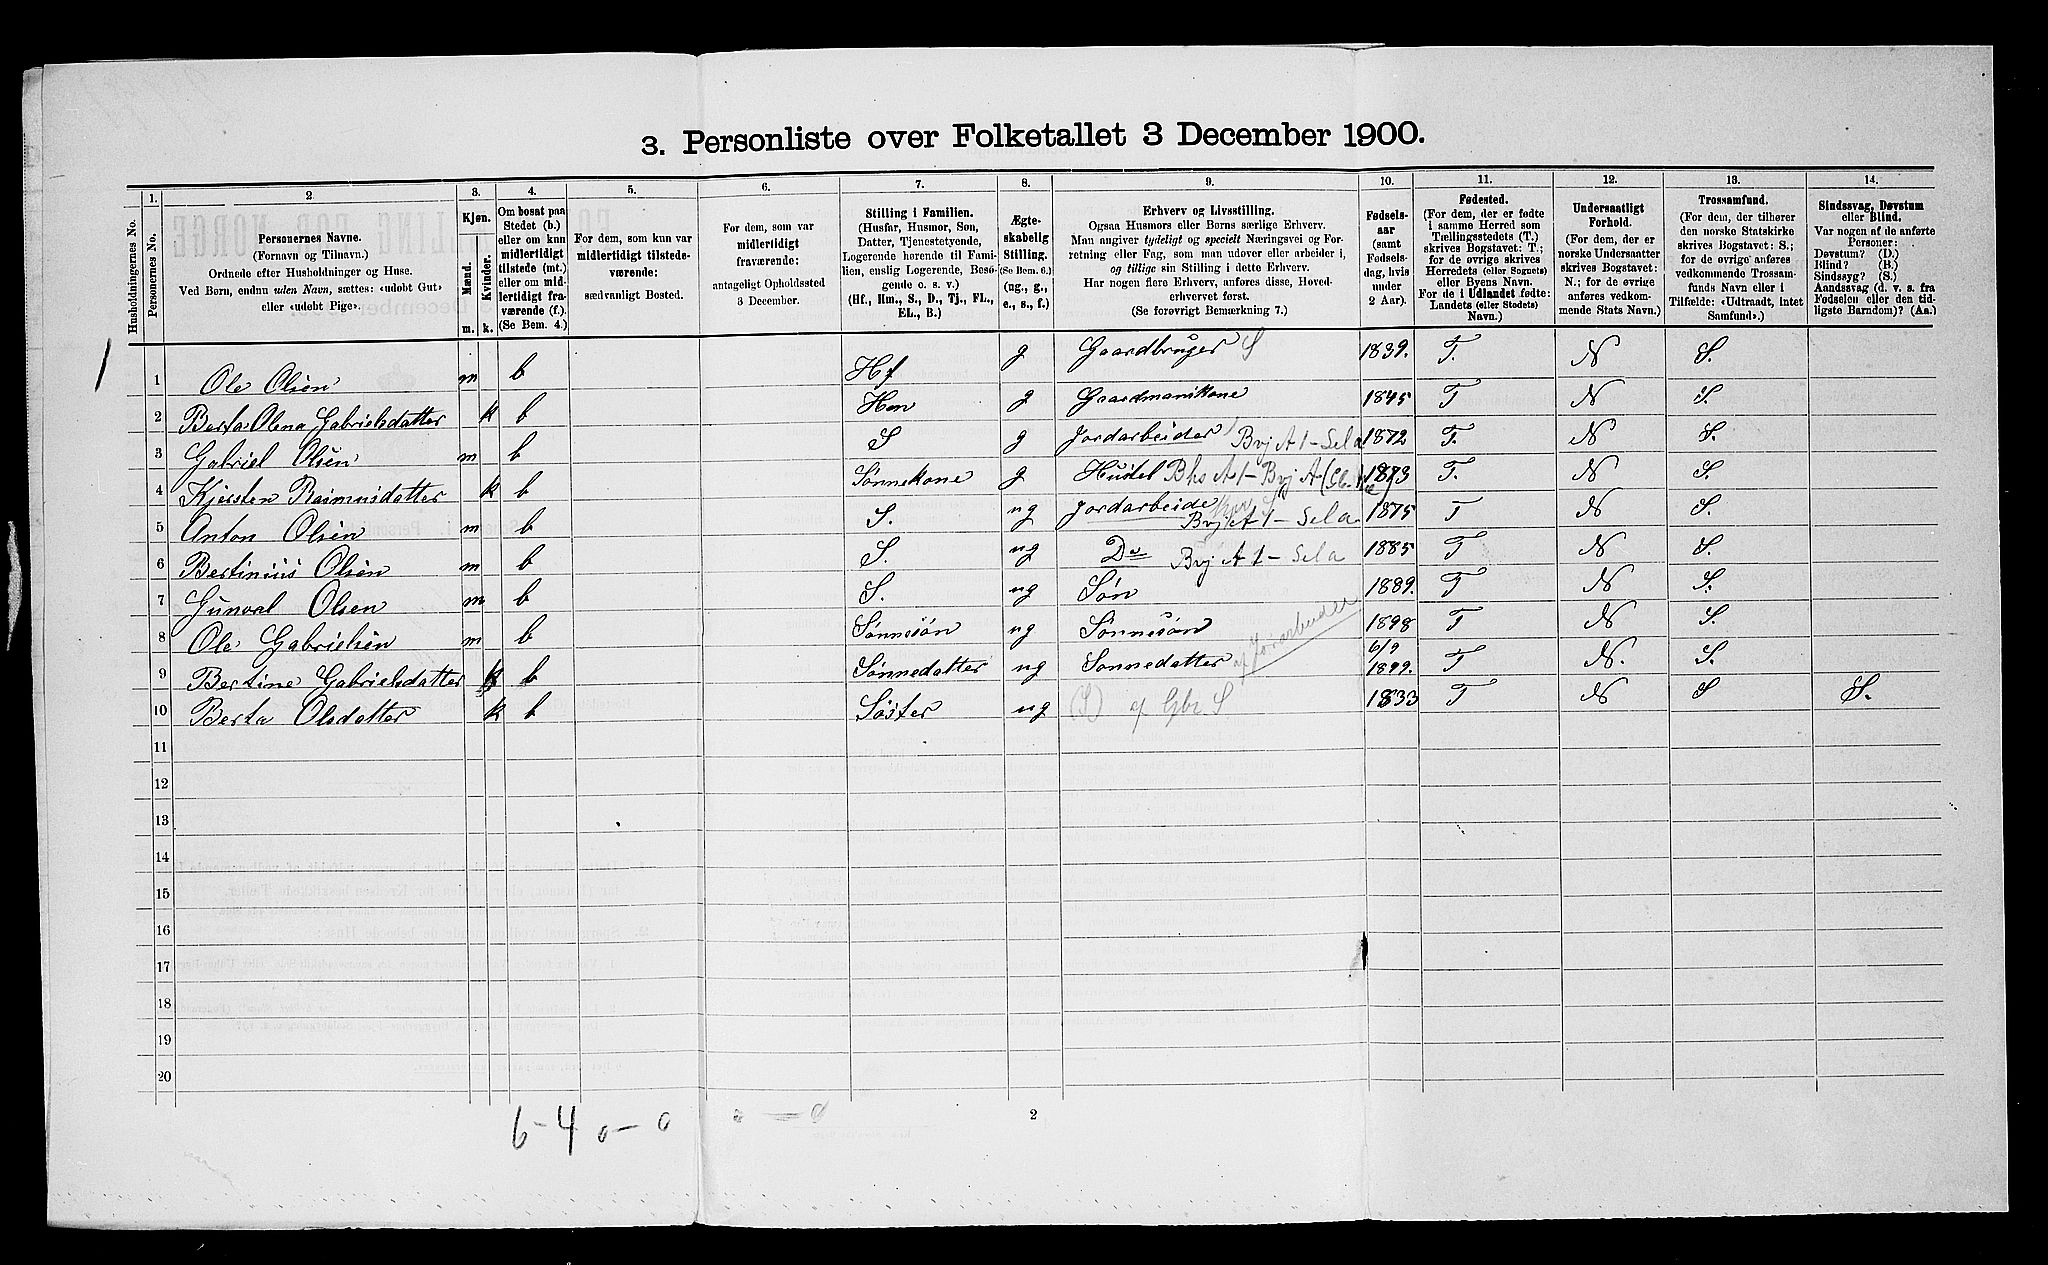 3. Personliste over Folketallet 3 December 1900.
Husholdningernes No.
1. Personernes No.
2. Personernes Navne. (Fornavn og Tilnavn.) Ordnede efter Husholdninger og Huse. Ved Børn, endnu uden Navn, sættes: «udøbt Gut» eller «udøbt Pige».
3. Kjøn. Mænd. m. Kvinder. k.
4. Om bosat paa Stedet (b.) eller om kun midlertidigt tilstede (mt.) eller om midlertidigt fraværende (f.) (Se Bem. 4.)
5. For dem, som kun var midlertidigt tilstedeværende: sædvanligt Bosted.
6. For dem, som var midlertidigt fraværende: antageligt Opholdssted 3 December.
7. Stilling i Familien. (Husfar, Husmor, Søn, Datter, Tjenestetyende, Logerende hørende til Familien, enslig Logerende, Besøgende o. s. v.) (Hf., Hm., S., D., Tj., FL., EL., B.)
8. Ægteskabelig Stilling. (Se Bem. 6.) (ug., g., e., s., f.)
9. Erhverv og Livsstilling. Ogsaa Husmors eller Børns særlige Erhverv. Man angiver tydeligt og specielt Næringsvei og Forretning eller Fag, som man udøver eller arbeider i, og tillige sin Stilling i dette Erhverv. Har nogen flere Erhverv, anføres disse, Hovederhvervet først. (Se forøvrigt Bemærkning 7.)
10. Fødselsaar (samt Fødselsdag, hvis under 2 Aar).
11. Fødested. (For dem, der er fødte i samme Herred som Tællingsstedets (T.) skrives Bogstavet: T.; for de øvrige skrives Herredets (eller Sognets) eller Byens Navn. For de i Udlandet fødte: Landets (eller Stedets) Navn.)
12. Undersaatligt Forhold. (For dem, der er norske Undersaatter skrives Bogstavet: N.; for de øvrige anføres vedkommende Stats Navn.)
13. Trossamfund. (For dem, der tilhører den norske Statskirke skrives Bogstavet: S.; for de øvrige anføres vedkommende Trossamfunds Navn eller i Tilfælde: «Udtraadt, intet Samfund».)
14. Sindssvag, Døvstum eller Blind. Var nogen af de anførte Personer: Døvstum? (D.) Blind? (B.) Sindssyg? (S.) Aandssvag (d. v. s. fra Fødselen eller den tidligste Barndom)? (Aa.)
1 1 Ole Olsen m b Hf g Gaardbruger S 1839. T. N S.
2 Berta Olena Gabrielsdatter k b Hm g Gaardmanskone 1845 T N S.
3 Gabriel Olsen m b S g Jordarbeider Bvj A 1 - Sela 1872 T. N S.
4 Kjersten Rasmusdatter k b Sønnekone g Hustel Bhs A 1 - Bvj A 1873 T. N S.
5 Anton Olsen m b S. ug Jordarbeide Bvj A 1 - Sela 1875 T N S.
6 Bertinius Olsen m b S. ug Do Bvj A 1 - Sela 1885 T N S.
7 Gunval Olsen m b S. ug Søn 1889. T N S.
8 Ole Gabrielsen m b Sønnesøn ug Sønnesøn 1898 T N S.
9 Bertine Gabrielsdatter k b Sønnedatter ug Sønnedatter af Jorarbeider 6/9 1899. T N. S.
10 Berta Olsdatter k b Søster ug (S) af Gbr S 1833 T N S S.
11
12
13
14
15
16
17
18
19
20
6-4 0-0 0-0
2